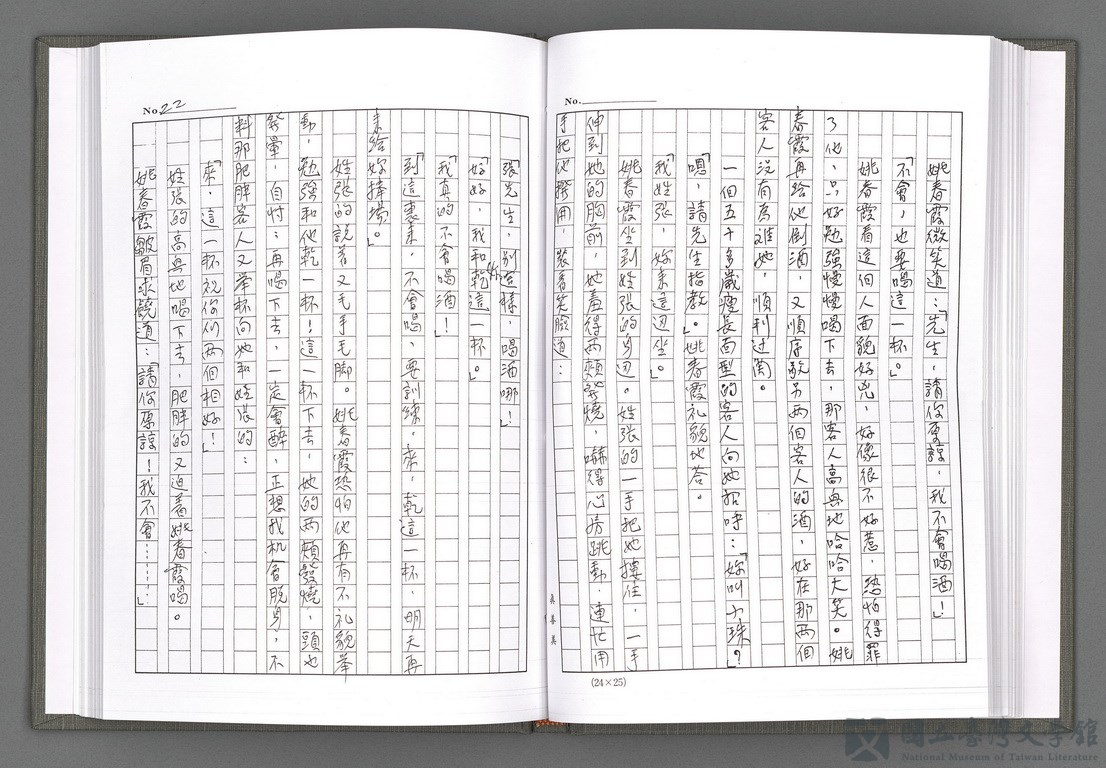 No.
姚春霞微笑道：「先生，請你原諒，我不會喝酒！」
「不會，也要喝這一杯。」
姚春霞看這個人面貌好兇，好像很不好惹，恐怕得罪
了他，只好勉強慢慢喝下去，那客人高興地哈哈大笑。姚
春霞再給他倒酒，又順序敬另兩個客人的酒，好在那兩個
客人沒有為難她，順利过関。
一個五十多歲瘦長面型的客人向她招呼：「妳叫小珠？」
「嗯，請先生指教」。姚春霞礼貌地答。
「我姓張，妳來這边坐。」
姚春霞坐到姓張的身边。姓張的一手把她摟住，一手
伸到她的胸前，她羞得兩頰發燒，嚇得心房跳動，連忙用
手把他撥開，裝着笑臉道：
(24×25)
No. 22
「張先生，別這樣，喝酒哪！」
「好好，我和妳乾這一杯。」
「我真的不會喝酒！」
「到這裏來，不會喝，要訓練，來，乾這一杯，明天再
來給妳捧場。」
姓張的說着又毛手毛脚。姚春霞恐怕他再有不礼貌舉
動，勉強和他乾一杯！這一杯下去，她的兩頰發燒，頭也
發暈，自忖：再喝下去，一定會醉，正想找机會脫身，不
料那肥胖客人又举杯向她和姓張的：
「來，這一杯祝你们兩個相好！」
姓張的高興地喝下去，肥胖的又迫着姚春霞喝。
姚春霞皺眉求饒道：「請你原諒！我不會………」
國立臺灣文學館
National Museum of Taiwan Literature